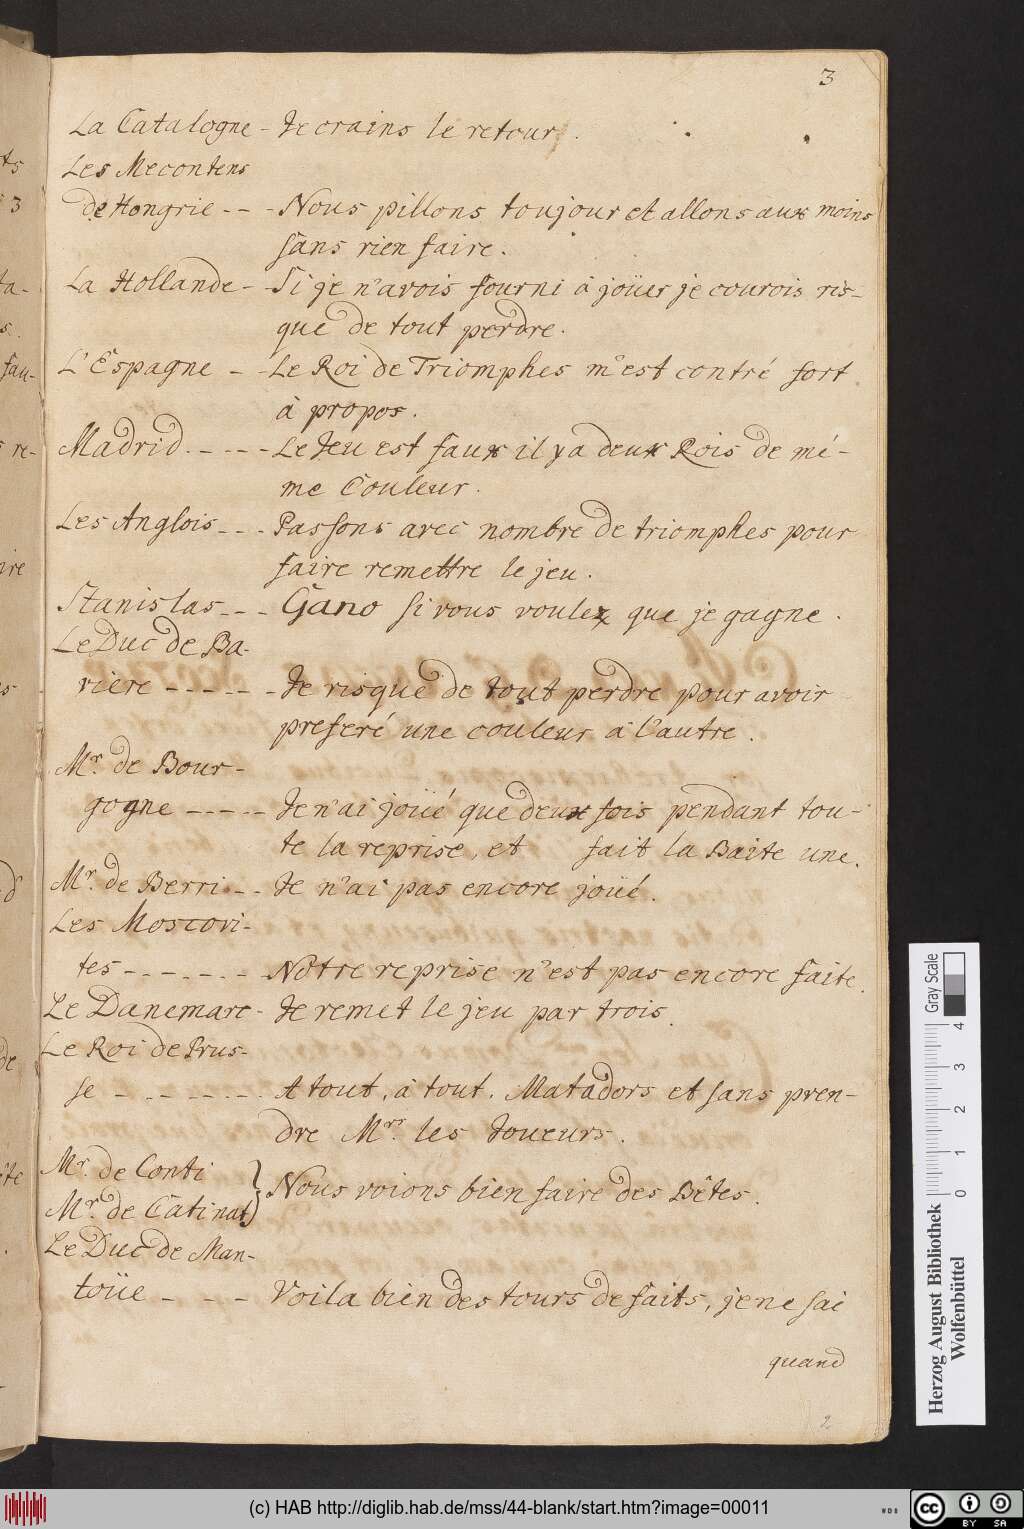 3
La Catalogne - Je crains le retour.
Les Mecontens
de Hongrie - - - Nous pillons toujour et allons aux moins
sans rien faire.
La Hollande - - Si je n'avois fourni à joüer je courois ris-
que de tout perdre.
L'Espagne - - Le Roi de Triomphes m'est contré fort
à propos.
Madrid - - - - Le Jeu est faux il y a deux Rois de mé-
me Couleur.
Les Anglois - - - Passons avec nombre de triomphes pour
faire remettre le jeu.
Stanislas - - - Gano si vous voulez que je gagne.
Le Duc de Ba-
viere - - - - - - Je risque de tout perdre pour avoir
preferé une couleur à l'autre.
Mr. de Bour-
gogne - - - - - Je n'ai joüé que deux fois pendant tou-
te la reprise, et fait la Baite une.
Mr. de Berri - - Je n'ai pas encore joüé.
Les Moscovi-
tes - - - - - - - Notre reprise n'est pas encore faite.
Le Danemarc - Je remet le jeu par trois.
Le Roi de Prus-
se - - - - - - - A tout, à tout. Matadors et sans pren-
dre Mrs. les Joueurs.
Mr. de Conti
Mr. de Catinat } Nous voions bien faire des Bêtes.
Le Duc de Man-
toüe - - - - Voila bien des tours de faits, je ne sai
quand
2
Gray Scale
0 1 2 3 4
Herzog August Bibliothek
Wolfenbüttel
(c) HAB http://diglib.hab.de/mss/44-blank/start.htm?image=00011
WDB
cc BY SA